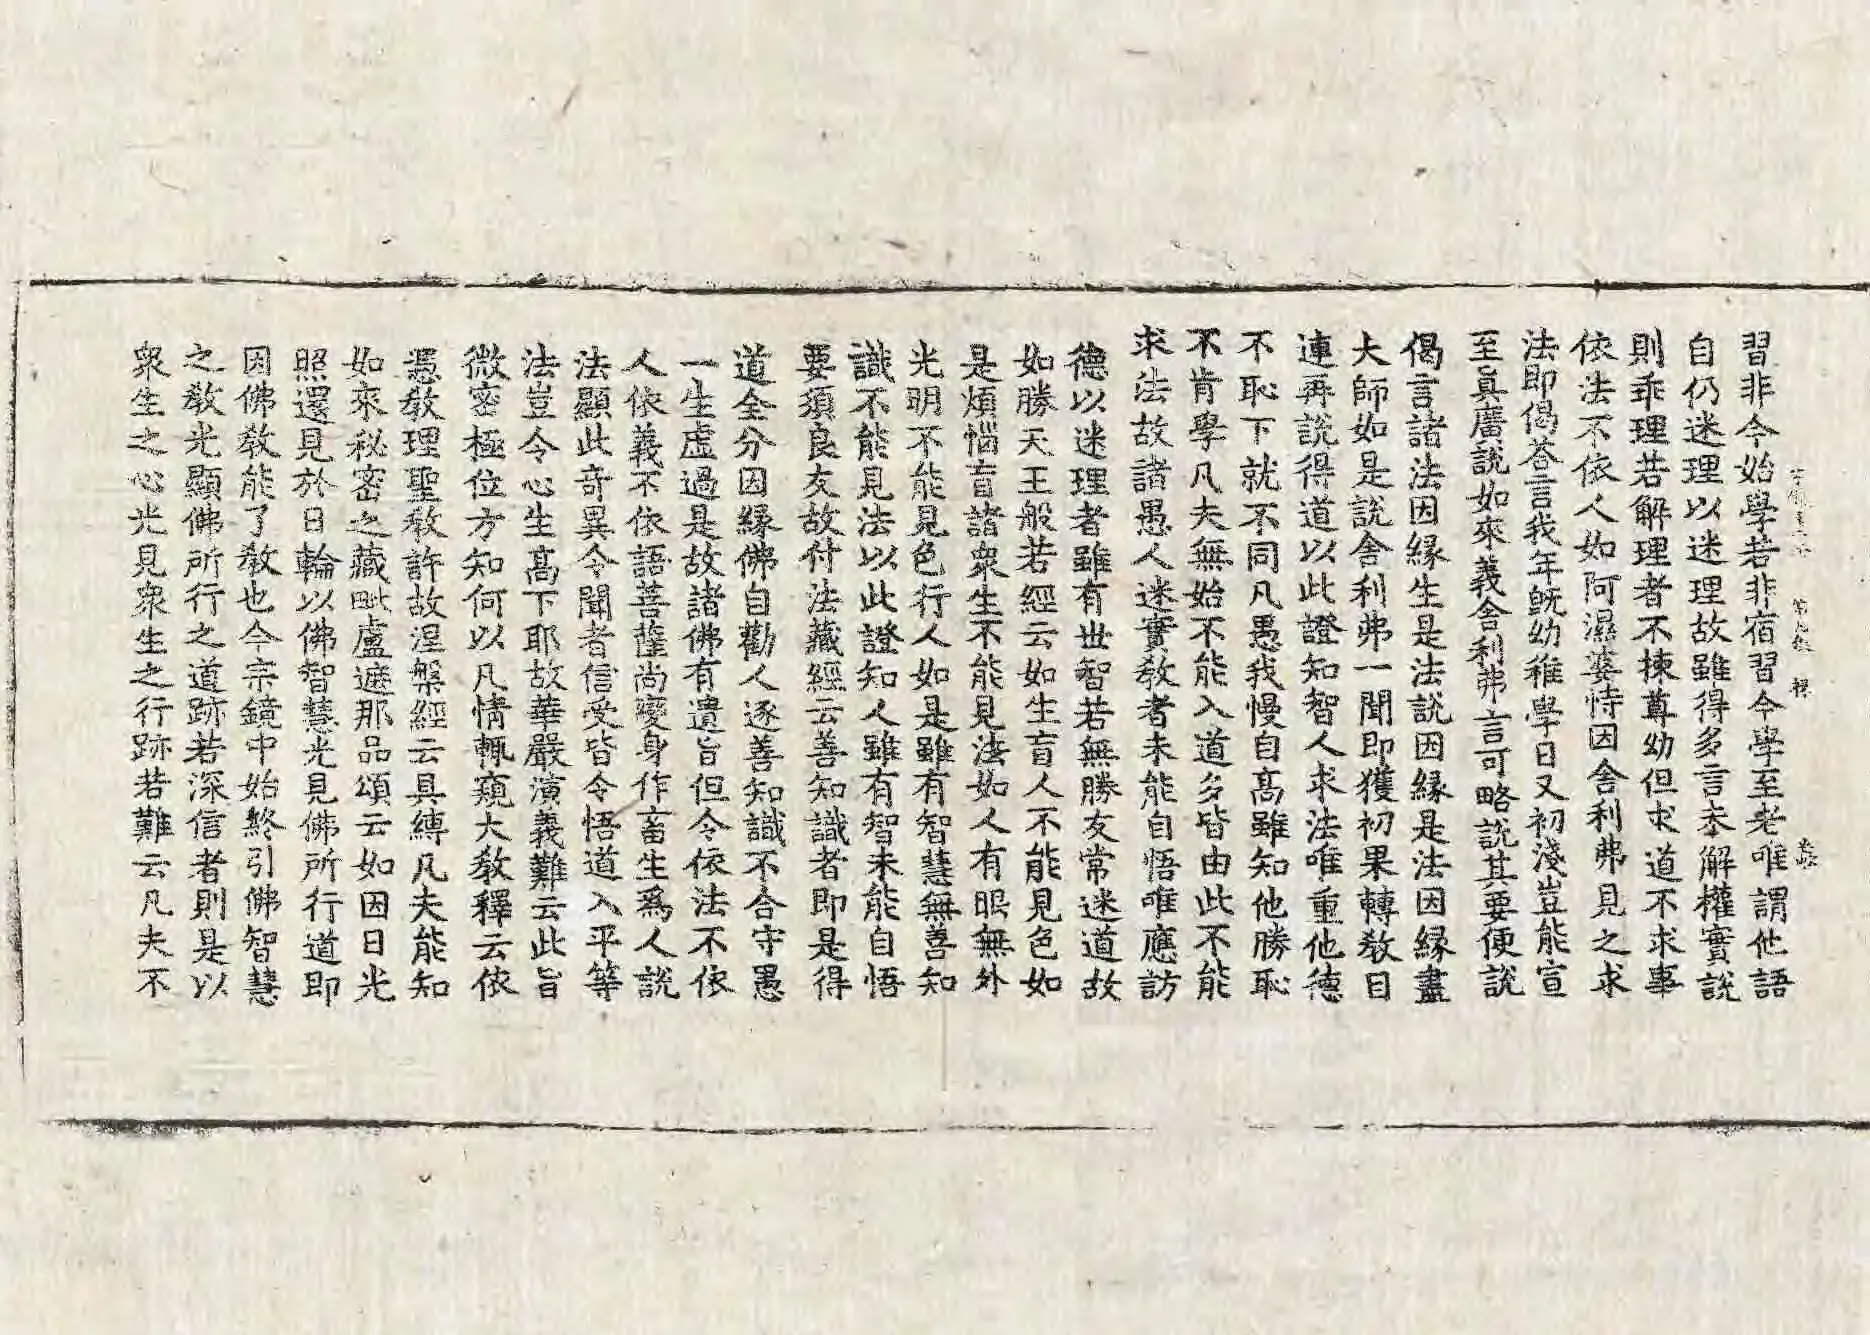 習非今始學若非宿習今學至老唯謂他語
自仍迷理以迷理故雖得多言未解權實說
則乖理若解理者不揀尊幼但求道不求事
依法不依人如阿濕婆恃因舍利弗見之求
法即偈荅言我年旣幼稚學日又初淺豈能宣
至眞廣說如來義舍利弗言可略說其要便說
偈言諸法因緣生是法說因緣是法因緣盡
大師如是說舍利弗一聞即獲初果轉教目
連再說得道以此證知智人求法唯重他德
不恥下就不同凡愚我慢自高雖知他勝恥
不肯學凡夫無始不能入道多皆由此不能
求法故諸愚人迷實教者未能自悟唯應訪
德以迷理者雖有世智若無勝友常迷道故
如勝天王般若經云如生盲人不能見色如
是煩惱盲諸衆生不能見法如人有眼無外
光明不能見色行人如是雖有智慧無善知
識不能見法以此證知人雖有智未能自悟
要須良友故付法藏經云善知識者即是得
道全分因緣佛自勸人逐善知識不合守愚
一生虛過是故諸佛有遺旨但令依法不依
人依義不依語菩薩尚變身作畜生爲人說
法顯此奇異令聞者信受皆令悟道入平等
法豈令心生高下耶故華嚴演義難云此旨
微密極位方知何以凡情輒窺大教釋云依
憑教理聖教許故涅槃經云具縛凡夫能知
如來秘密之藏毗盧遮那品頌云如因日光
照還見於日輪以佛智慧光見佛所行道即
因佛教能了教也今宗鏡中始終引佛智慧
之教光顯佛所行之道跡若深信者則是以
衆生之心光見衆生之行跡若難云凡夫不